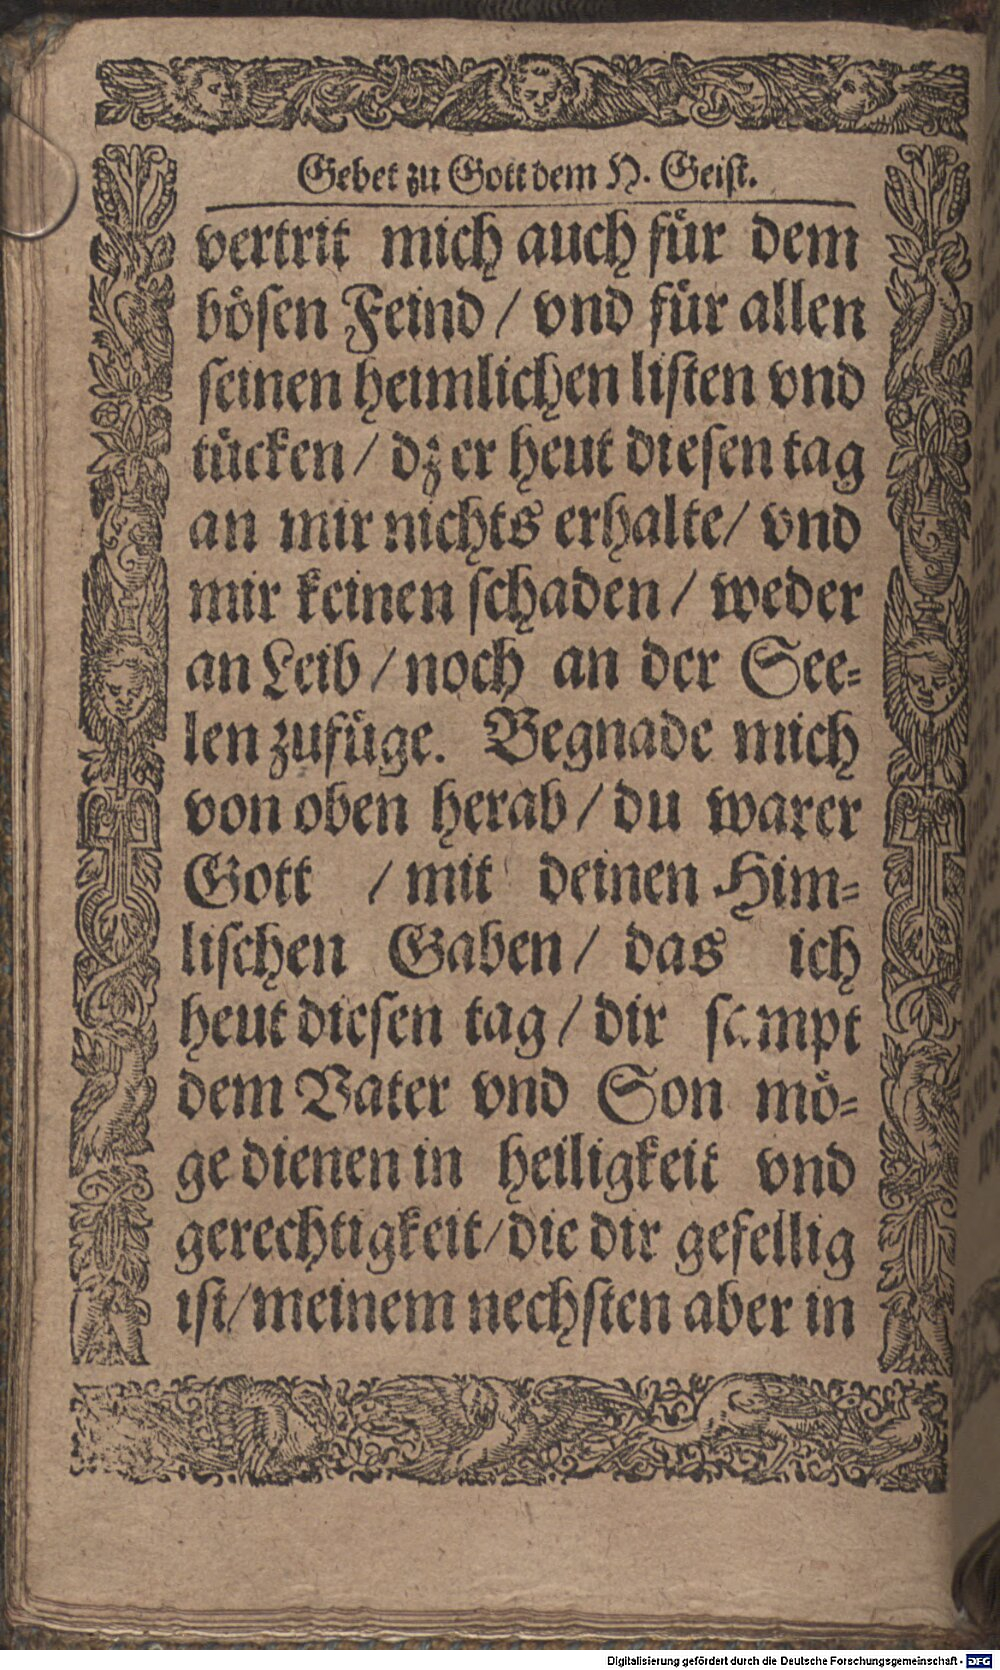 Gebet zu Gott dem H. Geist.
vertrit mich auch fuͤr dem
boͤsen Feind / vnd fuͤr allen
seinen heimlichen listen vnd
tuͤcken / dz er heut diesen tag
an mir nichts erhalte / vnd
mir keinen schaden / weder
an Leib / noch an der See-
len zufuͤge. Begnade mich
von oben herab / du warer
Gott / mit deinen Him-
lischen Gaben / das ich
heut diesen tag / dir sampt
dem Vater vnd Son moͤ-
ge dienen in heiligkeit vnd
gerechtigkeit / die dir gefellig
ist / meinem nechsten aber in
Digitalisierung gefördert durch die Deutsche Forschungsgemeinschaft - DFG